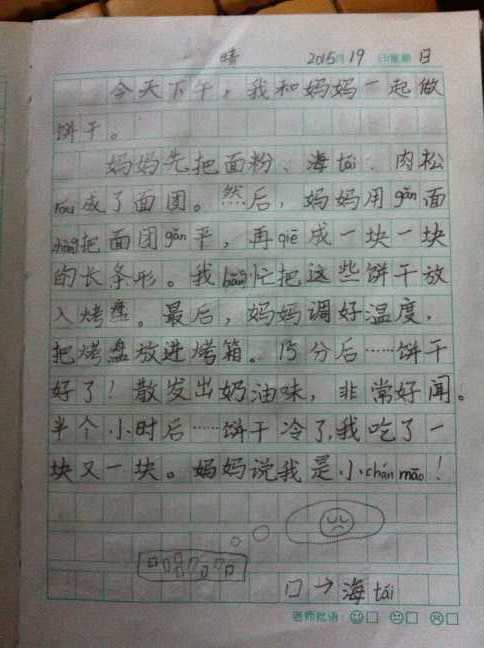 晴 2015年 19 日星期 日
今天下午，我和妈妈一起做
饼干。
妈妈先把面粉、海tái、肉松
róu成了面团。然后，妈妈用gǎn面
zhàng把面团gǎn平，再qiē成一块一块
的长条形。我bāng忙把这些饼干放
入烤盘。最后，妈妈调好温度，
把烤盘放进烤箱。15分后……饼干
好了！散发出奶油味，非常好闻。
半个小时后……饼干冷了，我吃了一
块又一块。妈妈说我是小chán māo！
口→海tái
老师批语：